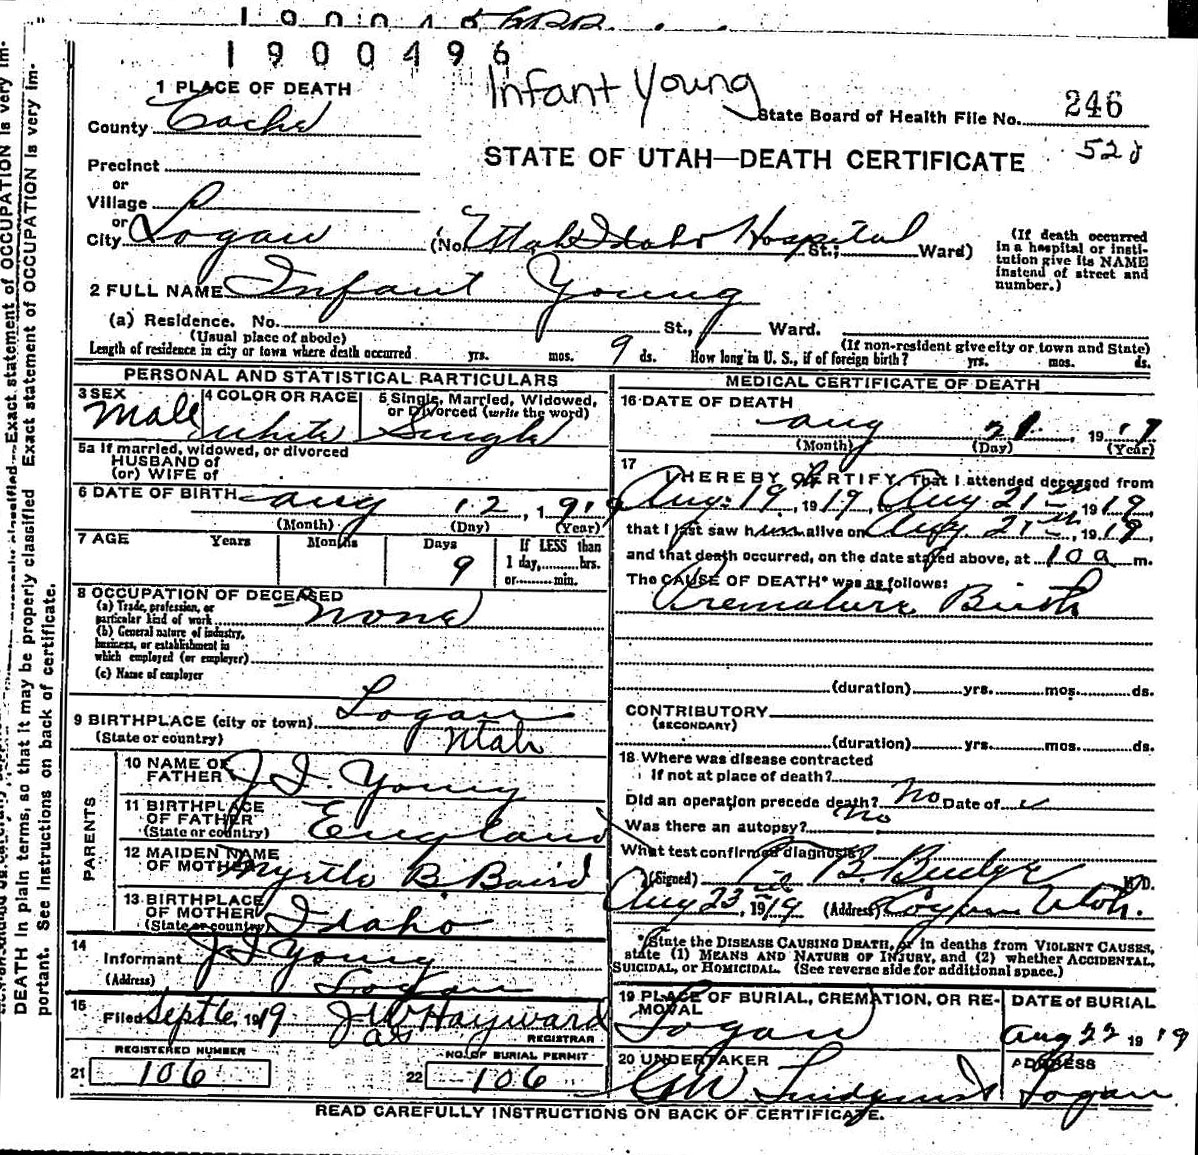 1900496
Infant Young
1 PLACE OF DEATH
County Cache
State Board of Health File No. 246
STATE OF UTAH—DEATH CERTIFICATE 528
Precinct
or
Village
or
City Logan (No. Utah Idaho Hospital St.; Ward)
(If death occurred in a hospital or insti-
tution give its NAME
instead of street and
number.)
2 FULL NAME Infant Young
(a) Residence. No. St., Ward.
(Usual place of abode)
(If non-resident give city or town and State)
Length of residence in city or town where death occurred yrs. mos. 9 ds. How long in U. S., if of foreign birth? yrs. mos. ds.
PERSONAL AND STATISTICAL PARTICULARS
3 SEX
Male
4 COLOR OR RACE
White
5 Single, Married, Widowed,
or Divorced (write the word)
Single
5a If married, widowed, or divorced
HUSBAND of
(or) WIFE of
6 DATE OF BIRTH Aug 12, 1919
(Month) (Day) (Year)
7 AGE Years Months Days If LESS than
1 day, hrs.
or min.
9
8 OCCUPATION OF DECEASED
(a) Trade, profession, or
particular kind of work none
(b) General nature of industry,
business, or establishment in
which employed (or employer)
(c) Name of employer
9 BIRTHPLACE (city or town) Logan
(State or country) Utah
PARENTS
10 NAME OF
FATHER J I Young
11 BIRTHPLACE
OF FATHER
(State or country) England
12 MAIDEN NAME
OF MOTHER Myrtle B. Baird
13 BIRTHPLACE
OF MOTHER
(State or country) Idaho
14
Informant J I Young
(Address) Logan
15
Filed Sept 6, 1919 J W Hayward
REGISTRAR
REGISTERED NUMBER
21 106
NO. OF BURIAL PERMIT
22 106
MEDICAL CERTIFICATE OF DEATH
16 DATE OF DEATH
Aug 21, 1919
(Month) (Day) (Year)
17
I HEREBY CERTIFY, That I attended deceased from
Aug. 19, 1919, to Aug 21st, 1919,
that I last saw him alive on Aug 21st, 1919,
and that death occurred, on the date stated above, at 10 a m.
The CAUSE OF DEATH* was as follows:
Premature Birth
(duration) yrs. mos. ds.
CONTRIBUTORY
(SECONDARY)
(duration) yrs. mos. ds.
18 Where was disease contracted
if not at place of death?
Did an operation precede death? No Date of
Was there an autopsy? No
What test confirmed diagnosis?
(Signed) B. Budge M.D.
Aug 23rd, 1919 (Address) Logan Utah.
*State the DISEASE CAUSING DEATH, or in deaths from VIOLENT CAUSES,
state (1) MEANS AND NATURE OF INJURY, and (2) whether ACCIDENTAL,
SUICIDAL, or HOMICIDAL. (See reverse side for additional space.)
19 PLACE OF BURIAL, CREMATION, OR RE-
MOVAL
Logan
DATE of BURIAL
Aug 22 1919
20 UNDERTAKER
ADDRESS
Logan
READ CAREFULLY INSTRUCTIONS ON BACK OF CERTIFICATE.
DEATH in plain terms, so that it may be properly classified. Exact statement of OCCUPATION is very im-
portant. See Instructions on back of certificate.